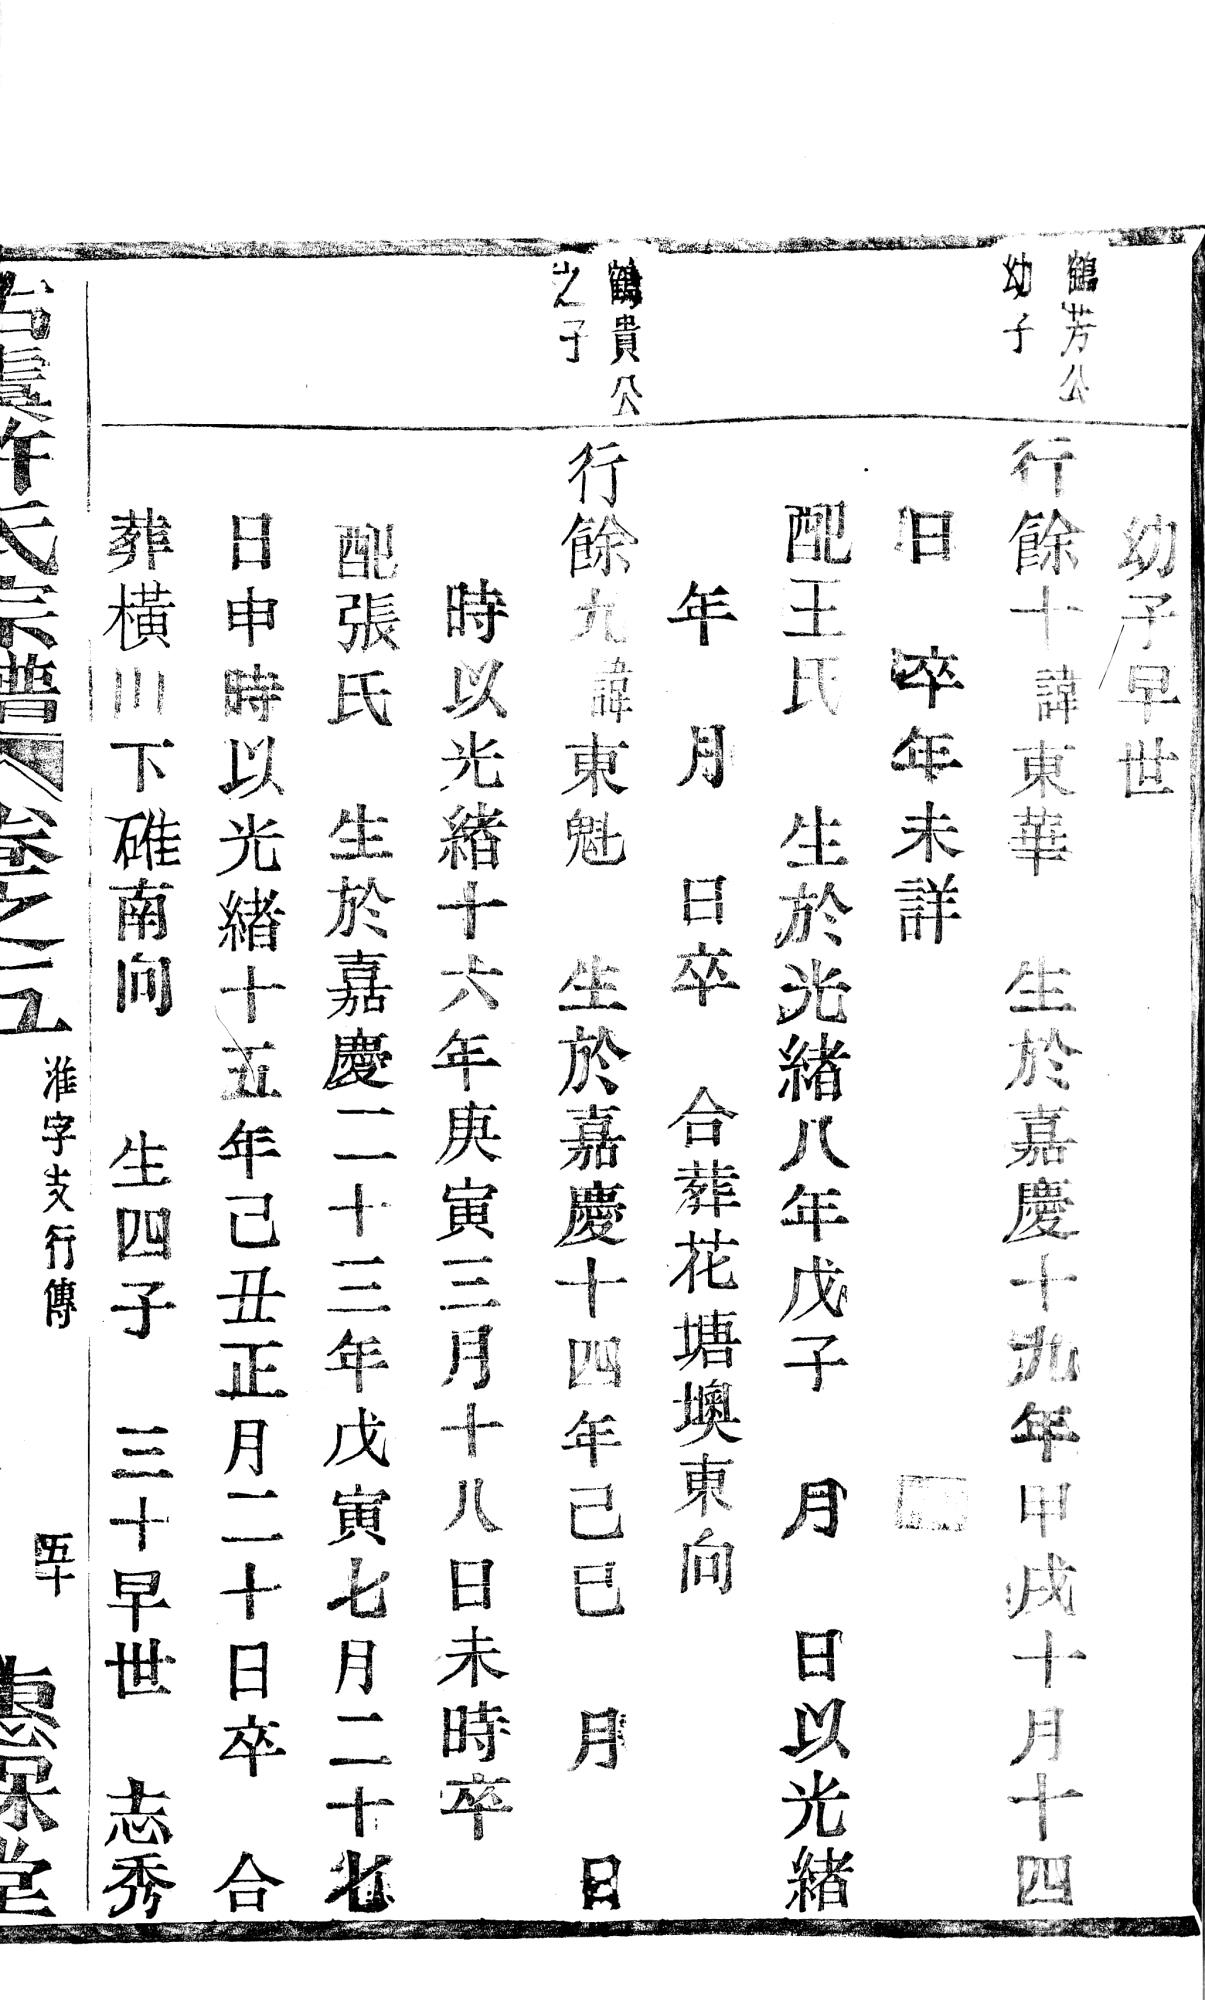 幼子早世
鶴芳公
幼子
行餘十諱東華　生於嘉慶十九年甲戌十月十四
日　卒年未詳
配王氏　生於光緒八年戊子　月　日以光緒
年　月　日卒　合葬花塘墺東向
鶴貴公
之子
行餘九諱東魁　生於嘉慶十四年己巳　月　日
時以光緒十六年庚寅三月十八日未時卒
配張氏　生於嘉慶二十三年戊寅七月二十七
日申時以光緒十五年己丑正月二十日卒　合
葬橫川下碓南向　生四子　三十早世　志秀
古虞許氏宗譜　卷之五
淮字支行傳
五十
惠保堂